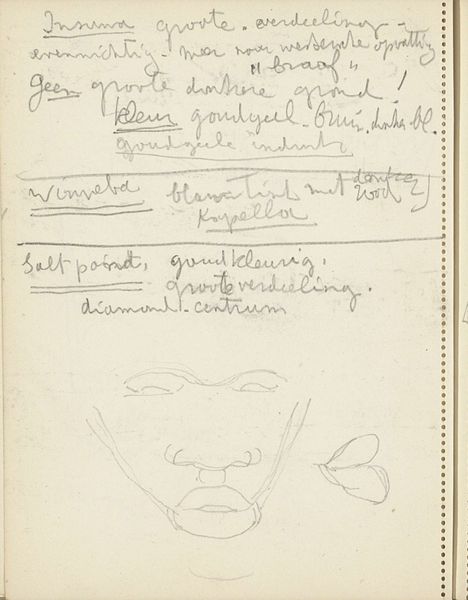 Insuma groote verdeeling -
evenwichtig - meer naar opvatting
"braaf"
Geen groote donkere grond!
kleur goudgeel - bruin. donker bl.
goudgeele indruk
Winneba blauw tint met donker
rood
Kapella
Saltpond, goudkleurig,
groote verdeeling.
diamond - centrum